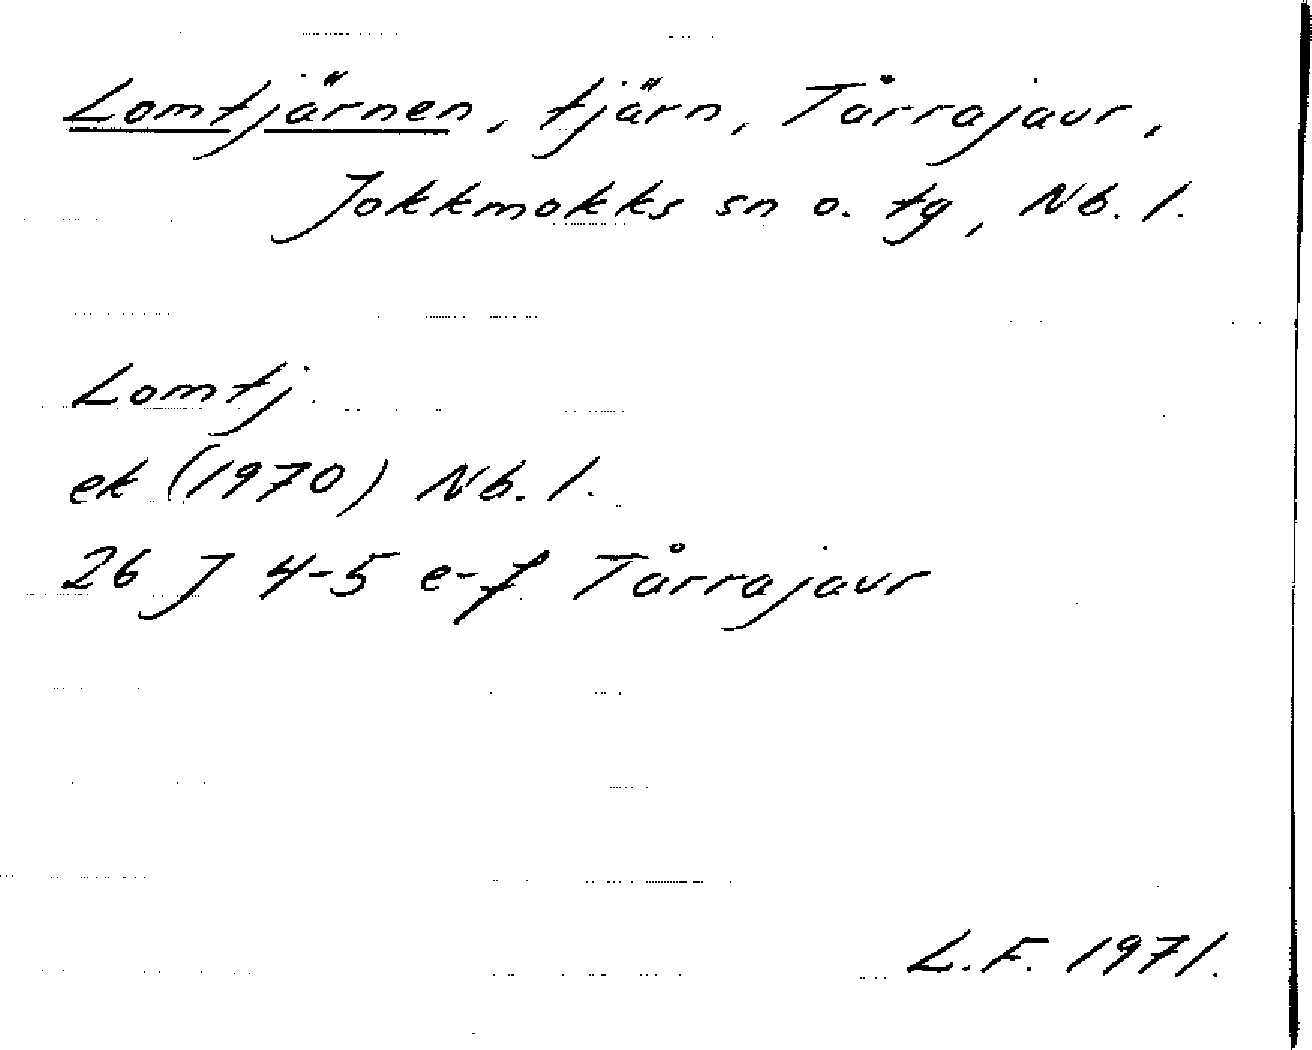 Lomtjärnen, tjärn, Tårrajaur,
Jokkmokks sn o. tg, Nb. l.
Lomtj.
ek (1970) Nb. l.
26 J 4-5 e-f Tårrajaur
L.F. 1971.